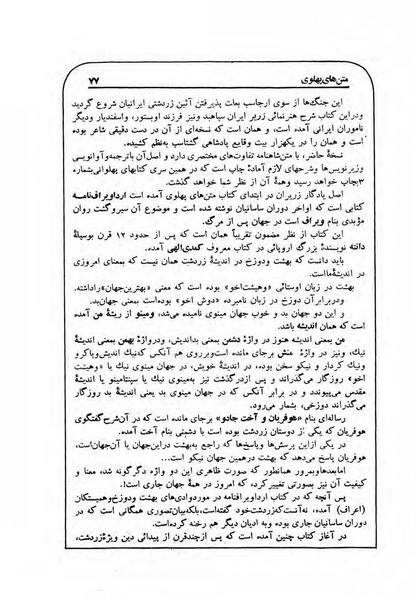 متن‌های پهلوی ۷۷
این جنگ‌ها از سوی ارجاسب بعات پذیرفتن آئین زردشتی ایرانیان شروع گردید
ودراین کتاب شرح هنرنمائی زریر ایران سپاهبد ونیز فرزند اوبستور، واسفندیار ودیگر
ناموران ایرانی آمده است، و همان است که نسخه‌ای از آن در دست دقیقی شاعر بوده
است و همان را در یکهزار بیت وقایع پادشاهی گشتاسب به‌نظم کشیده.
نسخهٔ حاضر، با متن‌شاهنامه تفاوت‌های مختصری دارد و اصل‌آن باترجمه‌وآوانویسی
وزیرنویس‌ها وشرحهای لازم آمادهٔ چاپ است که در همین سری کتابهای پهلوانی‌بشماره
۳بچاپ خواهد رسید وهمهٔ آن از نظر شما خواهد گذشت.
اصل یادگار زریران در ابتدای کتاب متن‌های پهلوی آمده است ارداویراف‌نامه
کتابی است که اواخر دوران ساسانیان نوشته شده است و موضوع آن سیروگشت روان
مؤبدی بنام ویراف است در جهان پس از مرگ.
این کتاب از نظر مضمون تقریباً همان است که پس از حدود ۱۲ قرن بوسیلهٔ
دانته نویسندهٔ بزرگ اروپائی در کتاب معروف کمدی‌الهی آمده.
باید دانست که بهشت ودوزخ در اندیشهٔ زردشت همان نیست که بمعنای امروزی
در اندیشهٔ‌مااست.
بهشت در زبان اوستائی «وهیشت‌اخو» بوده است که معنی «بهترین‌جهان»راداشته.
ودربرابرآن دوزخ در زبان نامبرده «دوش اخو» بوده‌است بمعنی جهان‌بد.
و این دو جهان بد و خوب جهان مینوی نامیده می‌شد، ومینو از ریشهٔ من آمده
است که همان اندیشه باشد.
من بمعنی اندیشه هنوز در واژهٔ دشمن بمعنی بداندیش، ودرواژهٔ بهمن بمعنی اندیشهٔ
نیک، ونیز در واژهٔ منش برجای مانده است‌وبرروی هم آنکس که‌نیک اندیش‌وپاکرو
ونیک کردار و نیکو سخن بوده، در اندیشهٔ خویش، در جهان مینوی نیک یا «وهیشت
اخو» روزگار می‌گذراند و پس ازدرگذشت نیز به‌مینوی نیک یا سپنتامینو یا اندیشهٔ
مقدس می‌پیوندد و در برابر آنکس که در جهان مینوی بد یعنی اندیشهٔ بد روزگار
می‌گذراند دوزخی، بشمار می‌رود.
رساله‌ای بنام «هوفریان و آخت جادو» برجای مانده است که در آن‌شرح گفتگوی
هوفریان که یکی از دوستان زردشت بوده است با دشیتی بنام آخت آمده.
در یکی ازاین پرسش‌ها وپاسخ‌ها که راجع به‌بهشت دراین‌جهان یا آن‌جهان‌است،
هوفریان پاسخ می‌دهد که بهشت درهمین جهان نیکو است...
امابعدهاوبمرور همانطور که صورت ظاهری این دو واژه دگرگونه شد، معنا و
کیفیت آن نیز بصورتی تغییرکرد، که امروز در همهٔ جهان جاری است!
پس آنچه که در کتاب ارداویرافنامه در موردوادی‌های بهشت ودوزخ‌وهمیستکان
(اعراف) آمده، نه‌آنست‌که‌زردشت‌خود گفته‌است،بلکه‌بیان‌تصوری همگانی است که در
دوران ساسانیان جاری بوده وبه ادیان دیگر هم رخنه کرده‌است.
در آغاز کتاب چنین آمده است که پس ازچندقرن از پیدائی دین ویژهٔ زردشت،